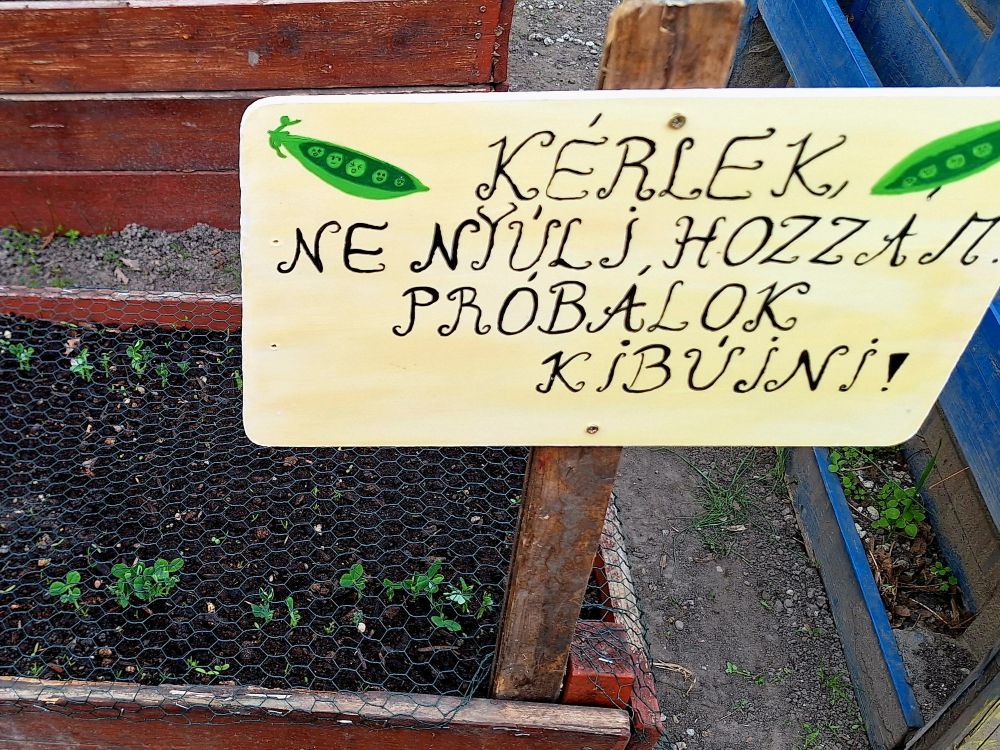 KÉRLEK,
NE NYÚLJ HOZZÁM.
PRÓBÁLOK
KIBÚJNI!